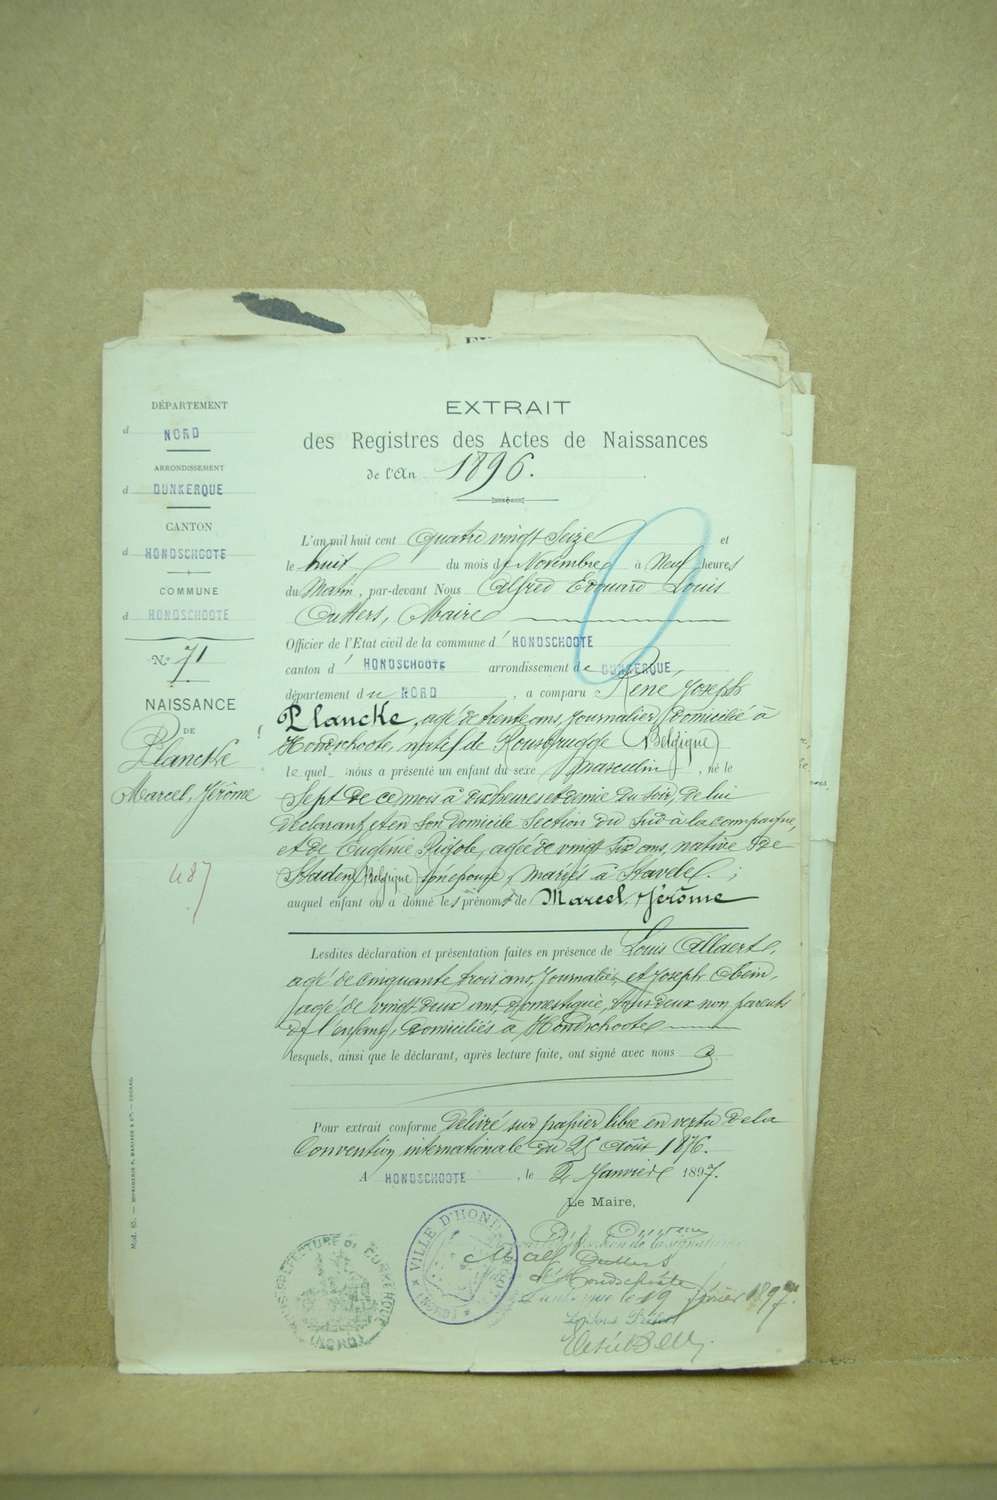 DÉPARTEMENT
d NORD
ARRONDISSEMENT
d DUNKERQUE
CANTON
d HONDSCHOOTE
COMMUNE
d HONDSCHOOTE
N° 71
NAISSANCE
DE
Plancke
Marcel, Jérôme
487
EXTRAIT
des Registres des Actes de Naissances
de l'An 1896.
L'an mil huit cent Quatre vingt Seize et
le huit du mois de Novembre à Neuf heures
du Matin, par-devant Nous Alfred Edouard Louis
Outters, Maire
Officier de l'Etat civil de la commune d' HONDSCHOOTE
canton d' HONDSCHOOTE arrondissement de DUNKERQUE,
département du NORD, a comparu René Joseph
Plancke, agé de trente ans, Journalier, Domicilié à
Hondschoote, natif de Rousbrugge (Belgique)
lequel nous a présenté un enfant du sexe masculin, né le
Sept de ce mois à dix heures et demie du Soir, de lui
déclarant, et en Son domicile Section du Sud à la campagne,
et de Eugénie agée de vingt Six ans, native de
Staden (Belgique) son epouse, mariés à Stavele. ;
auquel enfant on a donné les prénoms de Marcel, Jérôme
Lesdites déclaration et présentation faites en présence de Louis Allaert,
agé de cinquante trois ans, Journalier, et Joseph
agé de vingt-deux ans, domestique, tous deux non parents
de l'enfant, Domiciliés à Hondschoote
lesquels, ainsi que le déclarant, après lecture faite, ont signé avec nous
Pour extrait conforme délivré sur papier libre en vertu de la
Convention internationale du 25 Août 1876.
A HONDSCHOOTE, le 2 Janvier 1897.
Le Maire,
Outters
d'Hondschoote
le 19 février 1897.
VILLE D'HONDSCHOOTE
(NORD)
SOUS-PRÉFECTURE DE DUNKERQUE
(NORD)